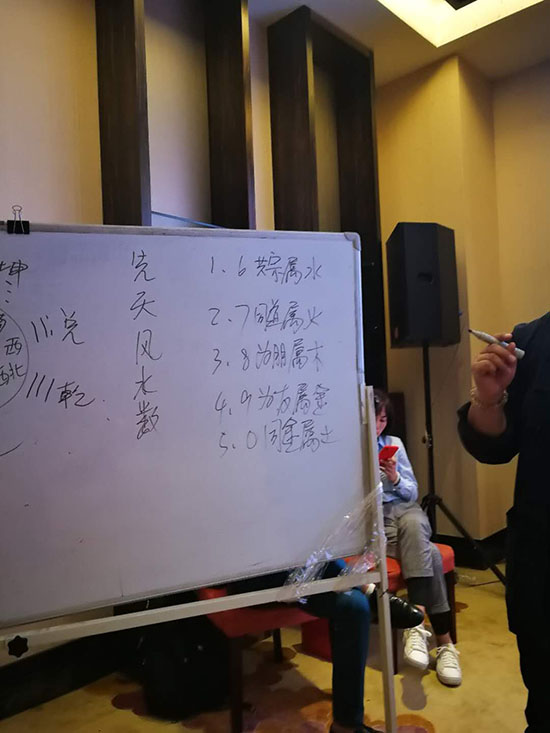 坤
西
西北
兑
乾
先天风水数
1.6共宗属水
2.7同道属火
3.8为朋属木
4.9为友属金
5.0同金属土